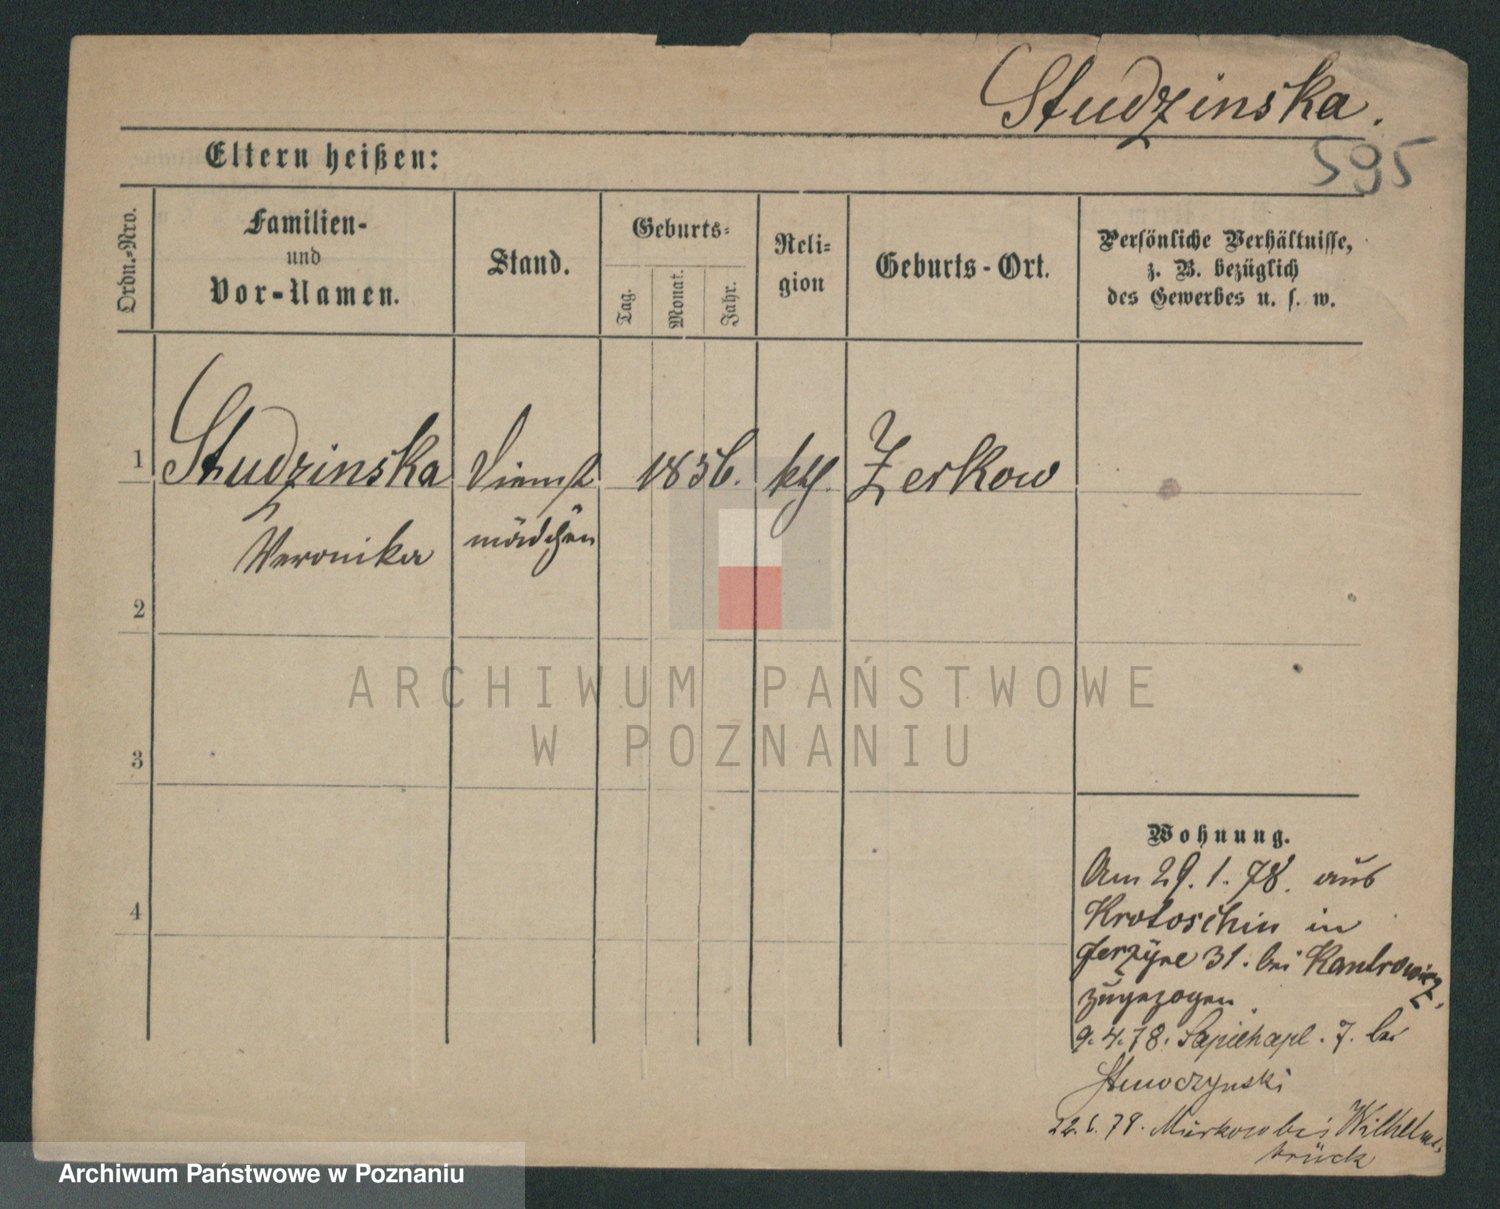 Studzinska.
595
Eltern heißen:
Ordn.-Nro.
Familien-
und
Vor-Namen.
Stand.
Geburts-
Tag.
Monat.
Jahr.
Reli-
gion
Geburts-Ort.
Persönliche Verhältnisse,
z. B. bezüglich
des Gewerbes u. s. w.
1
Studzinska
Dienst
1856.
kth.
Zerkow
Veronika
mädchen
2
3
4
ARCHIWUM PAŃSTWOWE
W POZNANIU
Wohnung.
Am 29.1.78. aus
Krotoschin in
Jerzyce 31. bei Kantrowicz,
zugezogen
9.4.78. Sapiehapl. 7. bei
78. Murkow bei Wilhelms
brück
Archiwum Państwowe w Poznaniu